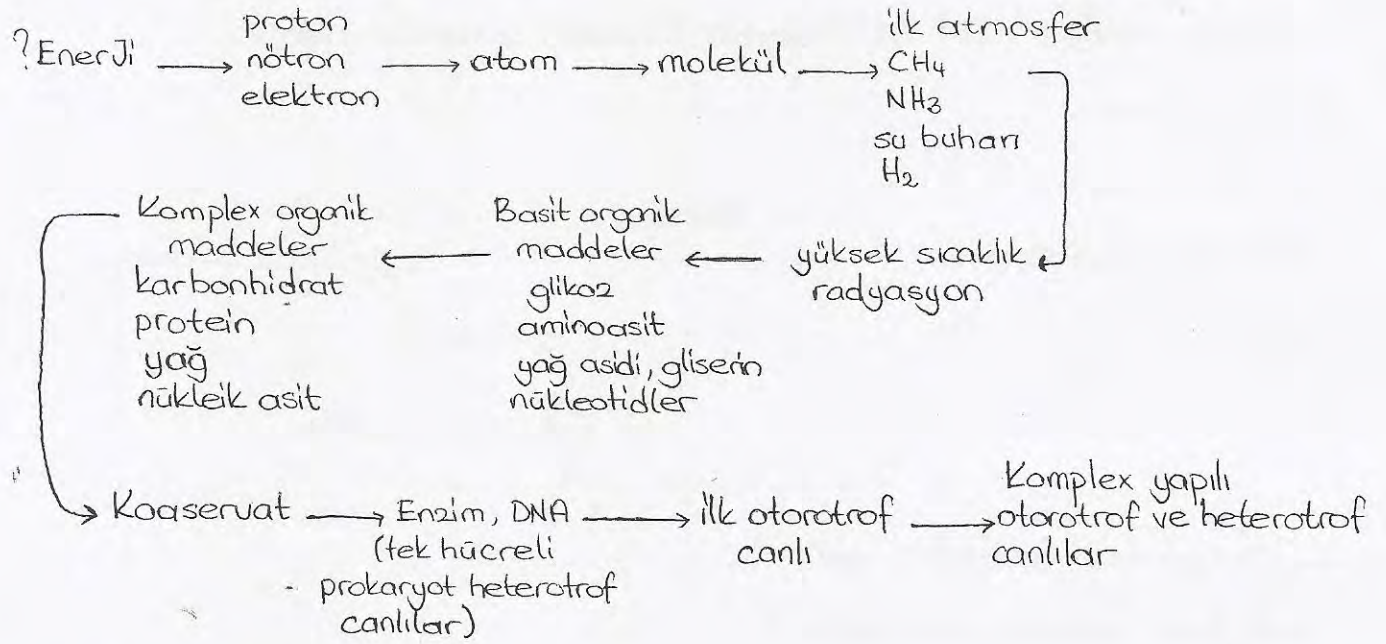 ?EnerJi → proton nötron elektron → atom → molekül → ilk atmosfer
CH4
NH3
su buharı
H2
yüksek sıcaklık
radyasyon
Basit organik
maddeler
glikoz
aminoasit
yağ asidi, gliserin
nükleotidler
Komplex organik
maddeler
karbonhidrat
protein
yağ
nükleik asit
Koaservat → Enzim, DNA
(tek hücreli
- prokaryot heterotrof
canlılar)
ilk otorotrof
canlı
Komplex yapılı
otorotrof ve heterotrof
canlılar